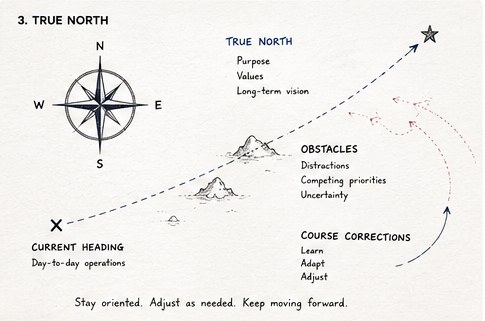 3. TRUE NORTH
N
W
E
S
TRUE NORTH
Purpose
Values
Long-term vision
OBSTACLES
Distractions
Competing priorities
Uncertainty
CURRENT HEADING
Day-to-day operations
COURSE CORRECTIONS
Learn
Adapt
Adjust
Stay oriented. Adjust as needed. Keep moving forward.